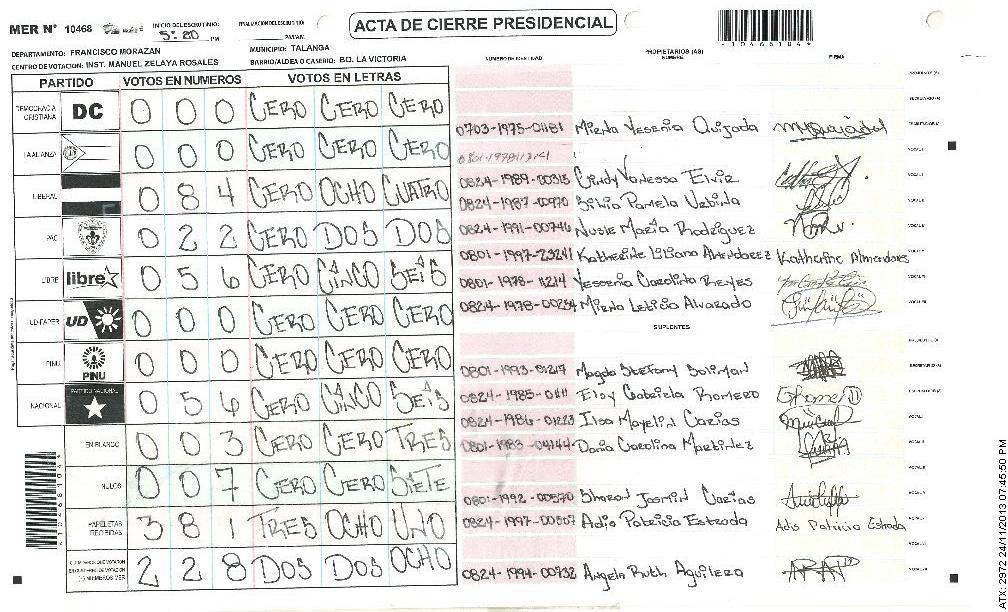 MER Nº 10468
INICIO DEL ESCRUTINIO: 5:20 PM
FINALIZACION DEL ESCRUTINIO: PM/AM.
ACTA DE CIERRE PRESIDENCIAL
*10468104*
DEPARTAMENTO: FRANCISCO MORAZAN
MUNICIPIO: TALANGA
CENTRO DE VOTACION: INST. MANUEL ZELAYA ROSALES
BARRIO/ALDEA O CASERIO: BO. LA VICTORIA
NUMERO DE IDENTIDAD
PROPIETARIOS (AS)
NOMBRE
FIRMA
PARTIDO VOTOS EN NUMEROS VOTOS EN LETRAS
DEMOCRACIA CRISTIANA DC 0 0 0 CERO CERO CERO
LA ALIANZA 0 0 0 CERO CERO CERO
LIBERAL 0 8 4 CERO OCHO CUATRO
PAC 0 2 2 CERO DOS DOS
LIBRE libre 0 5 6 CERO CINCO SEIS
UD-FAPER UD 0 0 0 CERO CERO CERO
PINU PINU 0 0 0 CERO CERO CERO
NACIONAL PARTIDO NACIONAL 0 5 6 CERO CINCO SEIS
EN BLANCO 0 0 3 CERO CERO TRES
NULOS 0 0 7 CERO CERO SIETE
PAPELETAS RECIBIDAS 3 8 1 TRES OCHO UNO
2 2 8 DOS DOS OCHO
0703-1975-01181 Mirna Yesenia Quijada
0824-1989-00315 Cindy Vanessa Elvir
0824-1987-00970 Silvia Pamela Urbina
0824-1991-00746 Maria Rodriguez
0801-1997-23241 Katherine Liliana Almendarez Katherine Almendares
0801-1978-11214 Yessenia Carolina Reyes
0824-1978-00254 Mirna Leticia Alvarado
SUPLENTES
0801-1993-01217 Magda Stefany Soliman
0824-1985-01111 Eloy Gabriela Romero
0824-1986-01223 Ilsa Mayelin Carias
0801-1983-04144 Dania Carolina Martinez
0801-1992-00570 Sharon Jasmin Carias
0824-1997-00507 Adis Patricia Estrada Adis Patricia Estrada
0824-1994-00732 Angela Ruth Aguilera
*10468104*
ATX: 2972 24/11/2013 07:45:50 PM